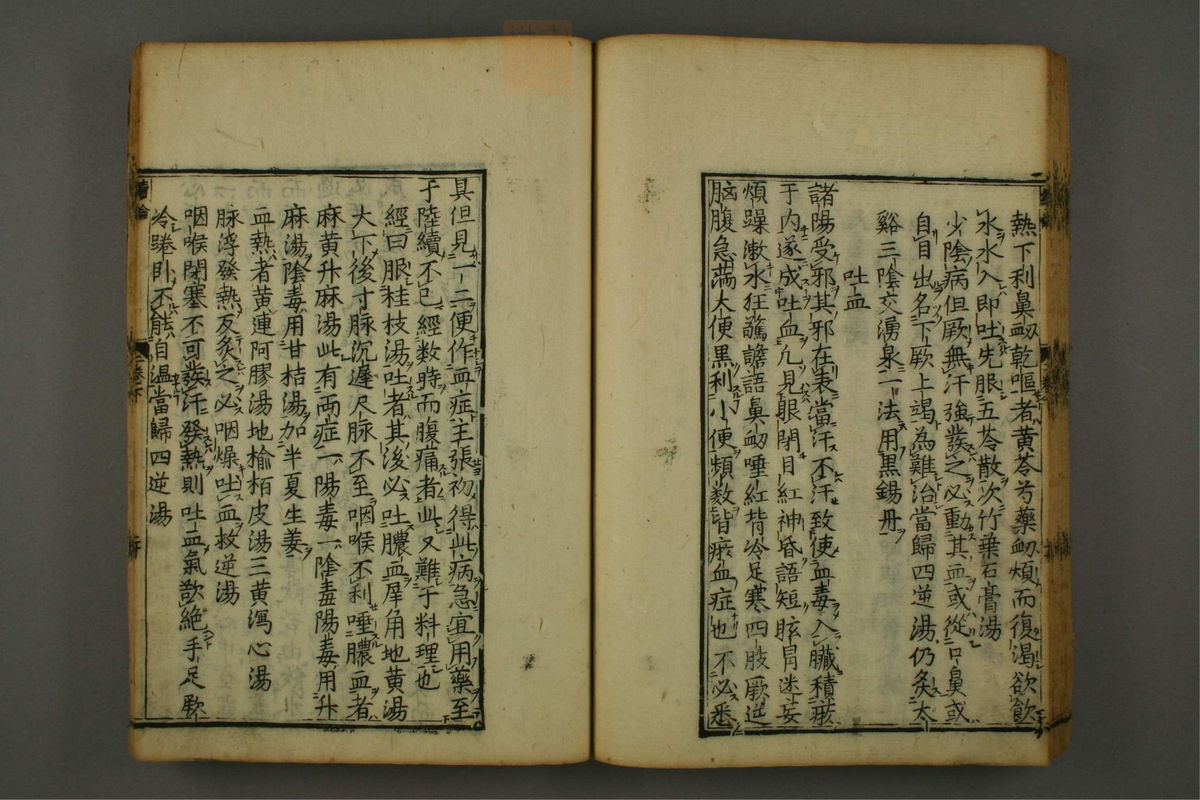 熱下利鼻衂乾嘔者黄芩芍藥衂煩而復渇欲飲
水水入即吐先服五苓散次竹葉石膏湯
少陰病但厥無汗強發之必動其血或從口鼻或
自目出名下厥上竭為難治當歸四逆湯仍灸太
谿三陰交湧泉一法用黒錫丹
吐血
諸陽受邪其邪在表當汗不汗致使血毒入臓積瘀
于内遂成吐血凡見眼閉目紅神昏語短眩冐迷妄
煩躁漱水狂䜗譫語鼻衂唾紅背冷足寒四肢厥逆
脳腹急満大便黒利小便頻数皆瘀血症也不必悉
具但見一二便作血症主張初得此病急宜用藥至
于陸續不已經数時而腹痛者此又難于料理也
經曰服桂枝湯吐者其後必吐膿血犀角地黄湯
大下後寸脉沉遲尺脉不至咽喉不利唾膿血者
麻黄升麻湯此有両症一陽毒一陰毒陽毒用升
麻湯陰毒用甘桔湯加半夏生姜
血熱者黄連阿膠湯地榆栢皮湯三黄瀉心湯
脉浮發熱反灸之必咽燥吐血救逆湯
咽喉閉塞不可發汗發熱則吐血氣欲絶手足厥
冷踡卧不能自温當歸四逆湯